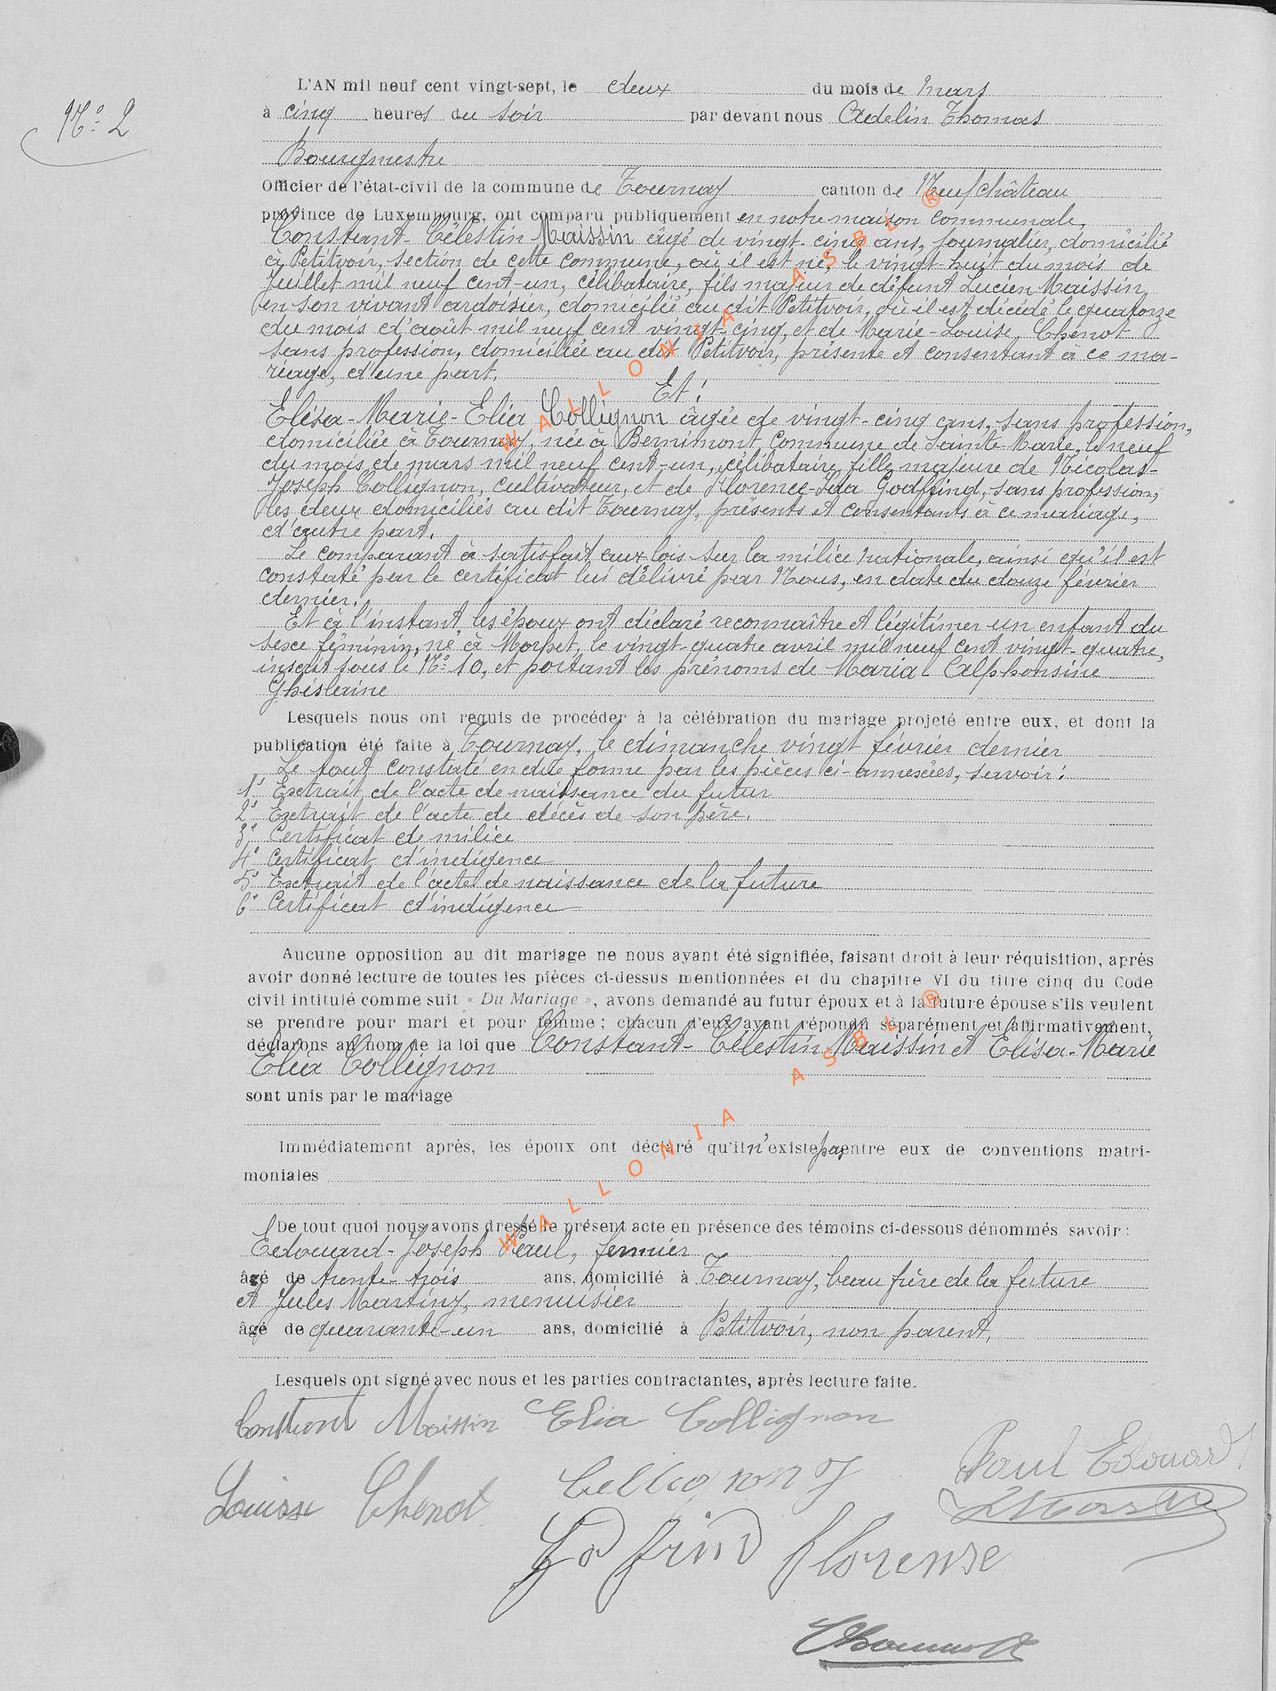 N° 2
L'AN mil neuf cent vingt-sept, le deux du mois de Mars
à cinq heures du soir par devant nous Adelin Thomas
Bourgmestre
Officier de l'état-civil de la commune de Tournay canton de Neufchâteau
province de Luxembourg, ont comparu publiquement en notre maison communale,
Constant-Célestin Maissin âgé de vingt-cinq ans, journalier, domicilié
à Petitvoir, section de cette commune, où il est né, le vingt-huit du mois de
Juillet mil neuf cent-un, célibataire, fils majeur de défunt Lucien Maissin,
en son vivant ardoisier, domicilié au dit Petitvoir, où il est décédé le quatorze
du mois d'août mil neuf cent vingt-cinq, et de Marie-Louise Chenot
sans profession, domiciliée au dit Petitvoir, présente et consentant à ce ma-
riage, d'une part.
Et:
Elisa-Marie-Elia Collignon âgée de vingt-cinq ans, sans profession,
domiciliée à Tournay, née à Bernimont, Commune de Sainte-Marie, le neuf
du mois de mars mil neuf cent-un, célibataire, fille majeure de Nicolas-
Joseph Collignon, cultivateur, et de Florence-Ida Godfrind, sans profession,
les deux domiciliés au dit Tournay, présents et consentants à ce mariage,
d'autre part.
Le comparant à satisfait aux lois sur la milice nationale, ainsi qu'il est
constaté par le certificat lui délivré par Nous, en date du douze février
dernier.
Et à l'instant les époux ont déclaré reconnaître et légitimer un enfant du
sexe féminin, né à Morhet, le vingt-quatre avril mil neuf cent vingt-quatre,
inscrit sous le N° 10, et portant les prénoms de Maria Alphonsine
Ghislaine
Lesquels nous ont requis de procéder à la célébration du mariage projeté entre eux, et dont la
publication été faite à Tournay, le dimanche vingt février dernier
Le tout constaté en due forme par les pièces ci-annexées, savoir:
1° Extrait de l'acte de naissance du futur
2° Extrait de l'acte de décès de son père.
3° Certificat de milice
4° Certificat d'indigence
5° Extrait de l'acte de naissance de la future
6° Certificat d'indigence
Aucune opposition au dit mariage ne nous ayant été signifiée, faisant droit à leur réquisition, après
avoir donné lecture de toutes les pièces ci-dessus mentionnées et du chapitre VI du titre cinq du Code
civil intitulé comme suit « Du Mariage », avons demandé au futur époux et à la future épouse s'ils veulent
se prendre pour mari et pour femme ; chacun d'eux ayant répondu séparément et affirmativement,
déclarons au nom de la loi que Constant-Célestin Maissin et Elisa-Marie
Elia Collignon
sont unis par le mariage
Immédiatement après, les époux ont déclaré qu'il n'existe pas entre eux de conventions matri-
moniales
De tout quoi nous avons dressé le présent acte en présence des témoins ci-dessous dénommés savoir :
Edouard-Joseph Paul, fermier
âgé de trente-trois ans, domicilié à Tournay, beau frère de la future
et Jules Martiny, menuisier
âgé de quarante-un ans, domicilié à Petitvoir, non parent.
Lesquels ont signé avec nous et les parties contractantes, après lecture faite.
Constant Maissin Elia Collignon
Paul Edouard
Louise Chenot Collignon J
Godfrind Florense
WALLONIA ASBL ®
WALLONIA ASBL ®